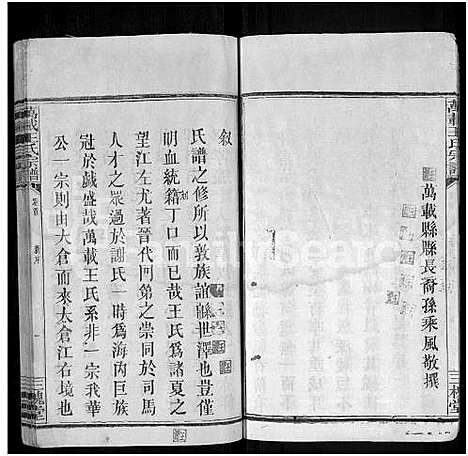 萬載王氏宗譜
萬載縣縣長裔孫乘風敬撰
三槐堂
敘
氏譜之修所以敦族誼緜世澤也豈僅
明血統籍丁口而已哉王氏爲諸夏之
望江左尤著晉代門第之崇同於司馬
門胄之眾過於謝氏一時爲海內巨族
冠於戲盛哉萬載王氏系非一宗我華
公一宗則由大倉而來大倉江右境也
萬載王氏宗譜
卷首
三槐堂